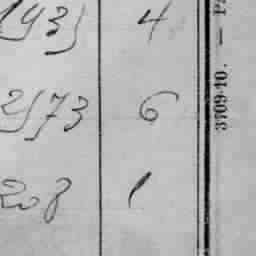 1931 4
2573 6
208 1
3709-10. — P